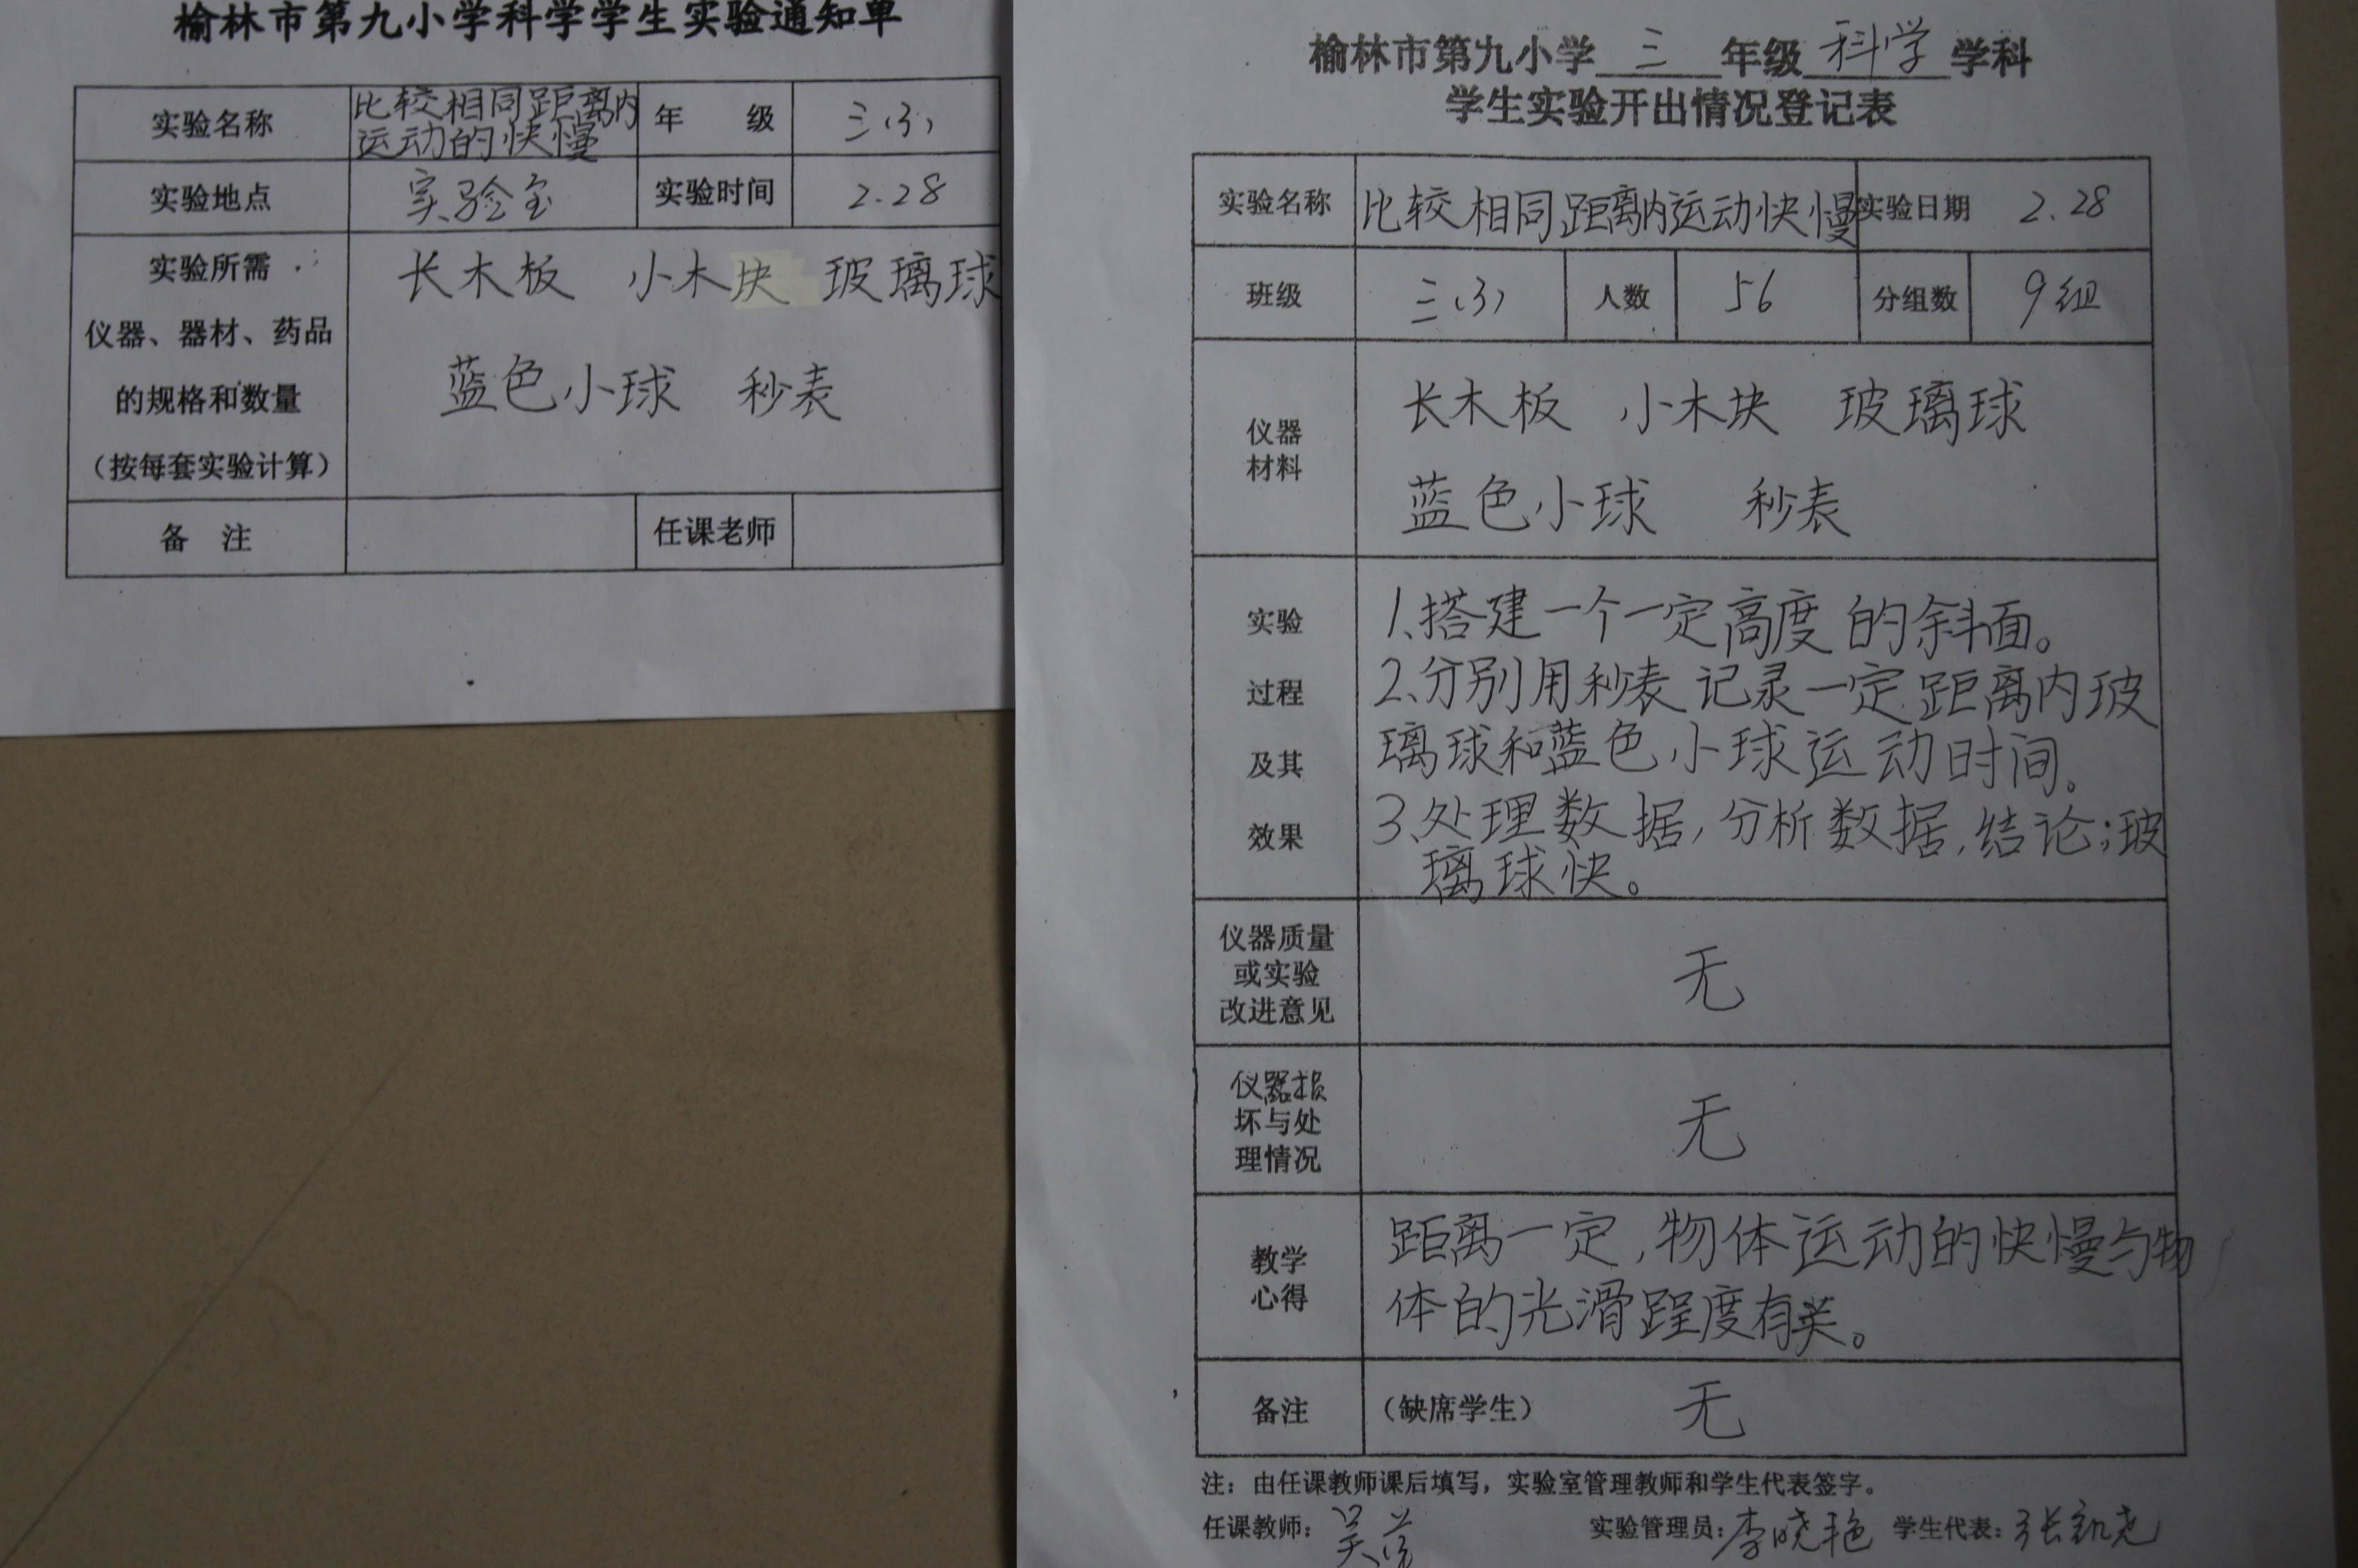 榆林市第九小学科学学生实验通知单
实验名称 比较相同距离内运动的快慢 年 级 三(3)
实验地点 实验室 实验时间 2.28
实验所需
仪器、器材、药品
的规格和数量
(按每套实验计算)
长木板 小木块 玻璃球
蓝色小球 秒表
备 注 任课老师
榆林市第九小学 三 年级 科学 学科
学生实验开出情况登记表
实验名称 比较相同距离内运动快慢 实验日期 2.28
班级 三(3) 人数 56 分组数 9组
仪器
材料
长木板 小木块 玻璃球
蓝色小球 秒表
实验
过程
及其
效果
1、搭建一个一定高度的斜面。
2、分别用秒表记录一定距离内玻
璃球和蓝色小球运动时间。
3、处理数据,分析数据,结论;玻
璃球快。
仪器质量
或实验
改进意见
无
仪器损
坏与处
理情况
无
教学
心得
距离一定,物体运动的快慢与物
体的光滑程度有关。
备注 (缺席学生) 无
注:由任课教师课后填写,实验室管理教师和学生代表签字。
任课教师: 吴 实验管理员:李晓艳 学生代表:张凯尧